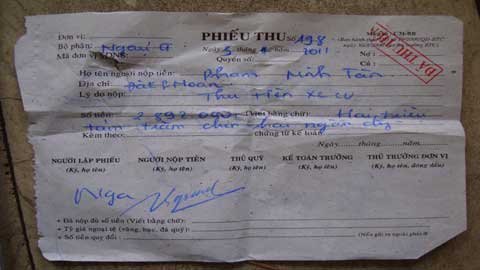 Đơn vị: PHIẾU THU Số 198
Bộ phận: Ngoại G
Mã đơn vị SDNS: Ngày 5 tháng năm 2011 Nợ:
Quyển số: Có:
ĐÃ THU TIỀN
Họ tên người nộp tiền: Phạm Minh Tân
Địa chỉ:
Lý do nộp: Thu tiền xe cứu
Số tiền: 2.892.000đ (Viết bằng chữ): Hai triệu
tám trăm chín hai ngàn đg
Kèm theo: chứng từ kế toán
Ngày tháng năm
NGƯỜI LẬP PHIẾU NGƯỜI NỘP TIỀN THỦ QUỸ KẾ TOÁN TRƯỞNG THỦ TRƯỞNG ĐƠN VỊ
(Ký, họ tên) (Ký, họ tên) (Ký, họ tên) (Ký, họ tên) (Ký, họ tên, đóng dấu)
Nga
- Đã nộp đủ số tiền (Viết bằng chữ):
+ Tỷ giá ngoại tệ (vàng, bạc, đá quý):
+ Số tiền quy đổi: